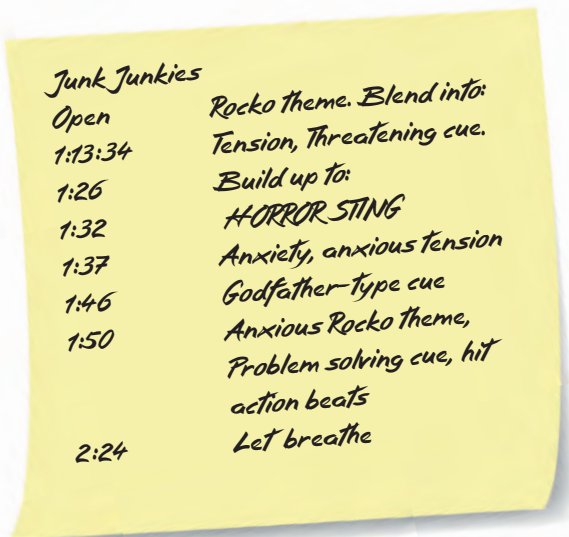 Junk Junkies
Open Rocko theme. Blend into:
1:13:34 Tension, Threatening cue.
1:26 Build up to:
1:32 HORROR STING
1:37 Anxiety, anxious tension
1:46 Godfather-type cue
1:50 Anxious Rocko theme,
Problem solving cue, hit
action beats
2:24 Let breathe